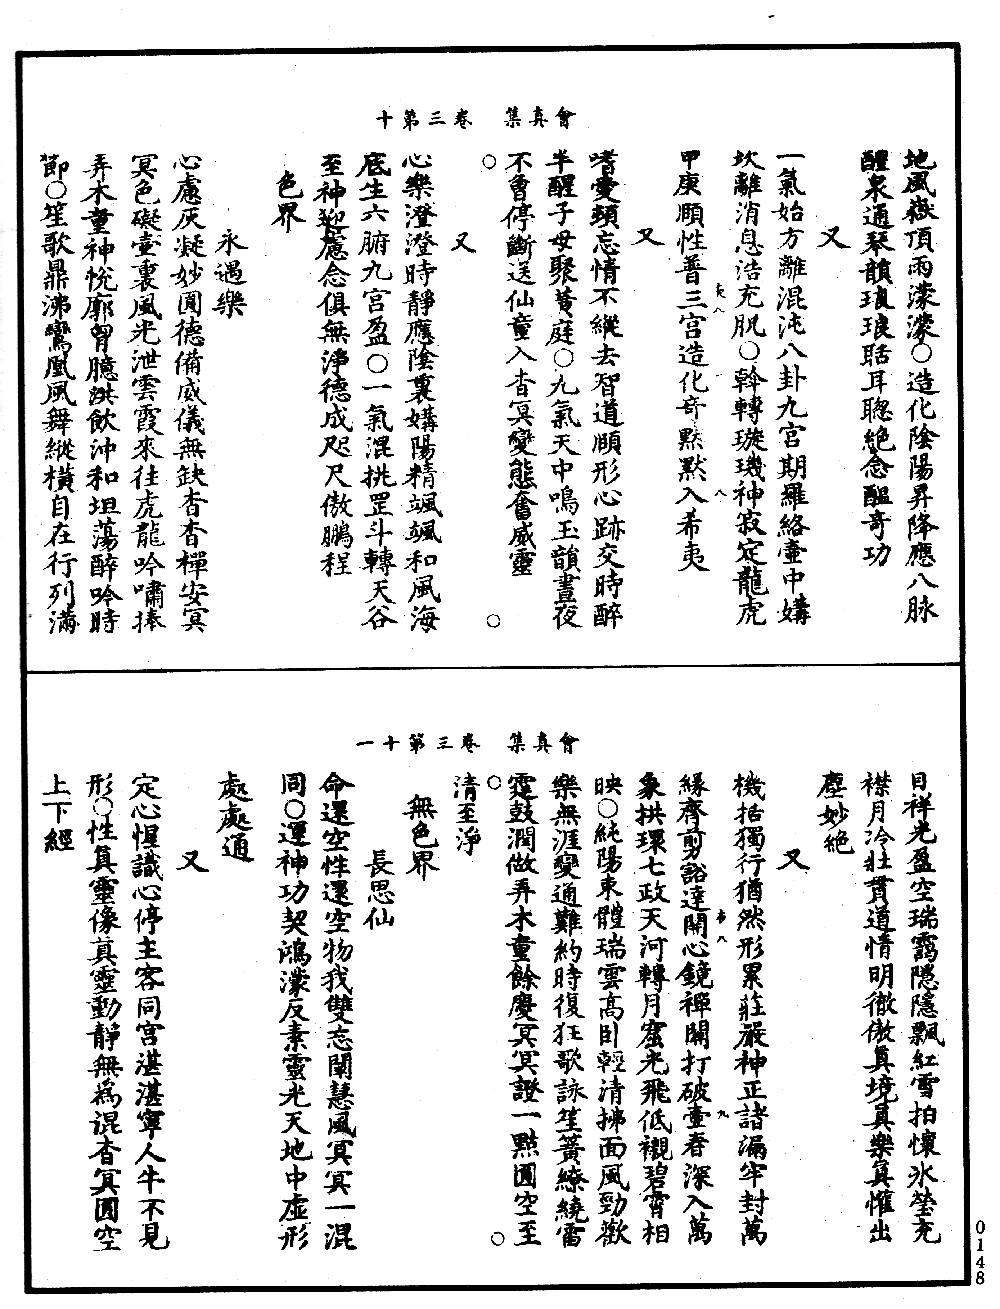 會真集　卷三第十
地風嶽頂雨濛濛○造化陰陽昇降應八脉
醒泉通琴韻琅琅聒耳聰絶念醖奇功
又
一氣始方離混沌八卦九宮期羅絡壷中媾
坎離消息浩充肌○斡轉璇璣神寂定龍虎
甲庚順性普三宮造化竒默默入希夷
又
嗜愛頭忘情不縱去智道順形心跡交時醉
半醒子母聚黄庭○九氣天中鳴玉韻晝夜
不曾停斷送仙童入杳冥變態奮威靈
又
心樂澄澄時靜應陰裏媾陽精颯颯和風海
底生六腑九宮盈○一氣混挑罡斗轉天谷
至神迎慮念俱無淨德成咫尺傲鵬程
色界
永遇樂
心慮灰凝妙圓德備威儀無缺杳杳樿安冥
冥色礙壷裏風光泄雲霞來往虎龍吟嘯捧
弄木童神悅廓胷臆洪飲沖和坦蕩醉吟時
節○笙歌鼎沸鸞凰風舞縱橫自在行列滿
會真集　卷三第十一
目祥光盈空瑞靄隱隱飄紅雪拍懷氷瑩充
襟月冷壯貫道情明徹傲真境真樂真懽出
塵妙絶
又
機括獨行猶然形累莊嚴神正諸漏牢封萬
緣齊剪豁達開心鏡禪關打破壷春深入萬
象拱環七政天河轉月窟光飛低襯碧霄相
映○純陽東體瑞雲高卧輕清拂面風勁歡
樂無涯變通難約時復狂歌詠笙簧繚繞雷
霆鼓潤做弄木童餘慶冥冥證一點圓空至
清至淨
無色界
長思仙
命還空性還空物我雙忘闡慧風冥冥一混
同○運神功契鴻濛反素靈光天地中虛形
處處通
又
定心惺識心停主客同宮湛湛寧人牛不見
形○性真靈像真靈動靜無為混杳冥圓空
上下經
0148